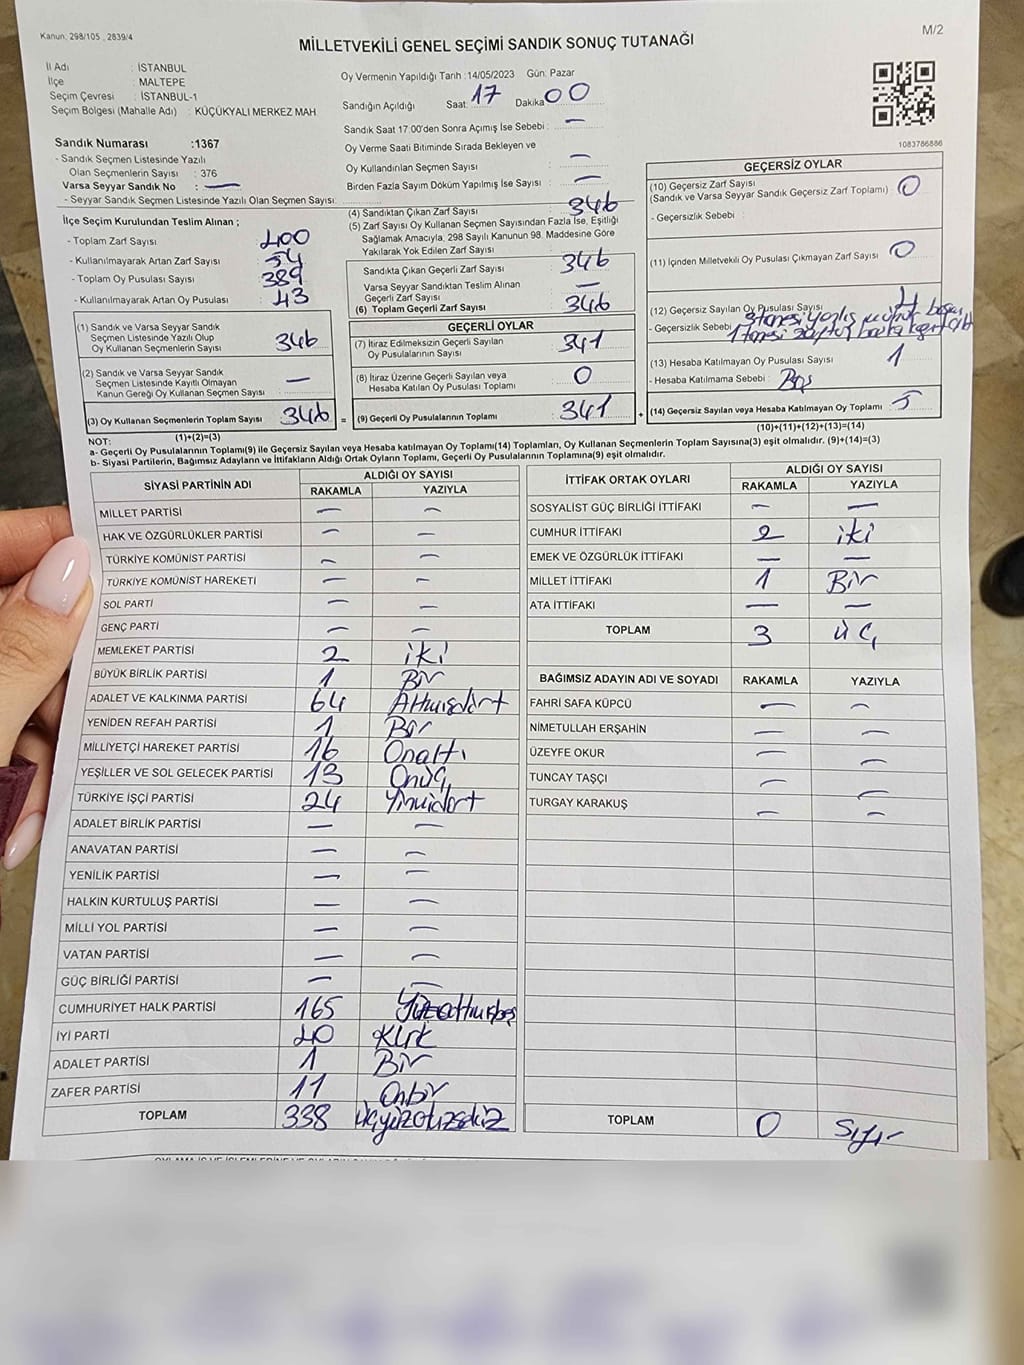 Kanun: 298/105 , 2839/4
M/2
MİLLETVEKİLİ GENEL SEÇİMİ SANDIK SONUÇ TUTANAĞI
İl Adı : İSTANBUL
İlçe : MALTEPE
Seçim Çevresi : İSTANBUL-1
Seçim Bölgesi (Mahalle Adı) : KÜÇÜKYALI MERKEZ MAH
Sandık Numarası :1367
- Sandık Seçmen Listesinde Yazılı
Olan Seçmenlerin Sayısı : 376
Varsa Seyyar Sandık No : —
- Seyyar Sandık Seçmen Listesinde Yazılı Olan Seçmen Sayısı
Oy Vermenin Yapıldığı Tarih :14/05/2023 Gün: Pazar
Sandığın Açıldığı Saat: 17 Dakika 00
Sandık Saat 17.00'den Sonra Açımış İse Sebebi : —
Oy Verme Saati Bitiminde Sırada Bekleyen ve
Oy Kullandırılan Seçmen Sayısı : —
Birden Fazla Sayım Döküm Yapılmış İse Sayısı : —
1083786886
İlçe Seçim Kurulundan Teslim Alınan ;
- Toplam Zarf Sayısı : 400
- Kullanılmayarak Artan Zarf Sayısı : 54
- Toplam Oy Pusulası Sayısı : 389
- Kullanılmayarak Artan Oy Pusulası : 43
(1) Sandık ve Varsa Seyyar Sandık
Seçmen Listesinde Yazılı Olup
Oy Kullanan Seçmenlerin Sayısı : 346
(2) Sandık ve Varsa Seyyar Sandık
Seçmen Listesinde Kayıtlı Olmayan
Kanun Gereği Oy Kullanan Seçmen Sayısı : —
(3) Oy Kullanan Seçmenlerin Toplam Sayısı : 346 =
(1)+(2)=(3)
(4) Sandıktan Çıkan Zarf Sayısı : 346
(5) Zarf Sayısı Oy Kullanan Seçmen Sayısından Fazla İse, Eşitliği
Sağlamak Amacıyla, 298 Sayılı Kanunun 98. Maddesine Göre
Yakılarak Yok Edilen Zarf Sayısı :
Sandıkta Çıkan Geçerli Zarf Sayısı : 346
Varsa Seyyar Sandıktan Teslim Alınan
Geçerli Zarf Sayısı : —
(6) Toplam Geçerli Zarf Sayısı : 346
GEÇERLİ OYLAR
(7) İtiraz Edilmeksizin Geçerli Sayılan
Oy Pusulalarının Sayısı : 341
(8) İtiraz Üzerine Geçerli Sayılan veya
Hesaba Katılan Oy Pusulası Toplamı : 0
(9) Geçerli Oy Pusulalarının Toplamı : 341 +
GEÇERSİZ OYLAR
(10) Geçersiz Zarf Sayısı : 0
(Sandık ve Varsa Seyyar Sandık Geçersiz Zarf Toplamı)
- Geçersizlik Sebebi :
(11) İçinden Milletvekili Oy Pusulası Çıkmayan Zarf Sayısı : 0
(12) Geçersiz Sayılan Oy Pusulası Sayısı : 4
- Geçersizlik Sebebi : 3 tanesi yanlış mühür
1 tanesi
(13) Hesaba Katılmayan Oy Pusulası Sayısı : 1
- Hesaba Katılmama Sebebi : Boş
(14) Geçersiz Sayılan veya Hesaba Katılmayan Oy Toplamı : 5
(10)+(11)+(12)+(13)=(14)
NOT:
a- Geçerli Oy Pusulalarının Toplamı(9) ile Geçersiz Sayılan veya Hesaba katılmayan Oy Toplamı(14) Toplamları, Oy Kullanan Seçmenlerin Toplam Sayısına(3) eşit olmalıdır. (9)+(14)=(3)
b- Siyasi Partilerin, Bağımsız Adayların ve İttifakların Aldığı Ortak Oyların Toplamı, Geçerli Oy Pusulalarının Toplamına(9) eşit olmalıdır.
SİYASİ PARTİNİN ADI ALDIĞI OY SAYISI
RAKAMLA YAZIYLA
MİLLET PARTİSİ — —
HAK VE ÖZGÜRLÜKLER PARTİSİ — —
TÜRKİYE KOMÜNİST PARTİSİ — —
TÜRKİYE KOMÜNİST HAREKETİ — —
SOL PARTİ — —
GENÇ PARTİ — —
MEMLEKET PARTİSİ 2 iki
BÜYÜK BİRLİK PARTİSİ 1 Bir
ADALET VE KALKINMA PARTİSİ 64 Altmışdört
YENİDEN REFAH PARTİSİ 1 Bir
MİLLİYETÇİ HAREKET PARTİSİ 16 Onaltı
YEŞİLLER VE SOL GELECEK PARTİSİ 13 Onüç
TÜRKİYE İŞÇİ PARTİSİ 24 Yirmidört
ADALET BİRLİK PARTİSİ — —
ANAVATAN PARTİSİ — —
YENİLİK PARTİSİ — —
HALKIN KURTULUŞ PARTİSİ — —
MİLLİ YOL PARTİSİ — —
VATAN PARTİSİ — —
GÜÇ BİRLİĞİ PARTİSİ — —
CUMHURİYET HALK PARTİSİ 165 Yüzaltmışbeş
İYİ PARTİ 40 Kırk
ADALET PARTİSİ 1 Bir
ZAFER PARTİSİ 11 Onbir
TOPLAM 338 üçyüzotuzsekiz
İTTİFAK ORTAK OYLARI ALDIĞI OY SAYISI
RAKAMLA YAZIYLA
SOSYALİST GÜÇ BİRLİĞİ İTTİFAKI — —
CUMHUR İTTİFAKI 2 iki
EMEK VE ÖZGÜRLÜK İTTİFAKI — —
MİLLET İTTİFAKI 1 Bir
ATA İTTİFAKI — —
TOPLAM 3 üç
BAĞIMSIZ ADAYIN ADI VE SOYADI RAKAMLA YAZIYLA
FAHRİ SAFA KÜPCÜ — —
NİMETULLAH ERŞAHİN — —
ÜZEYFE OKUR — —
TUNCAY TAŞÇI — —
TURGAY KARAKUŞ — —
TOPLAM 0 Sıfır